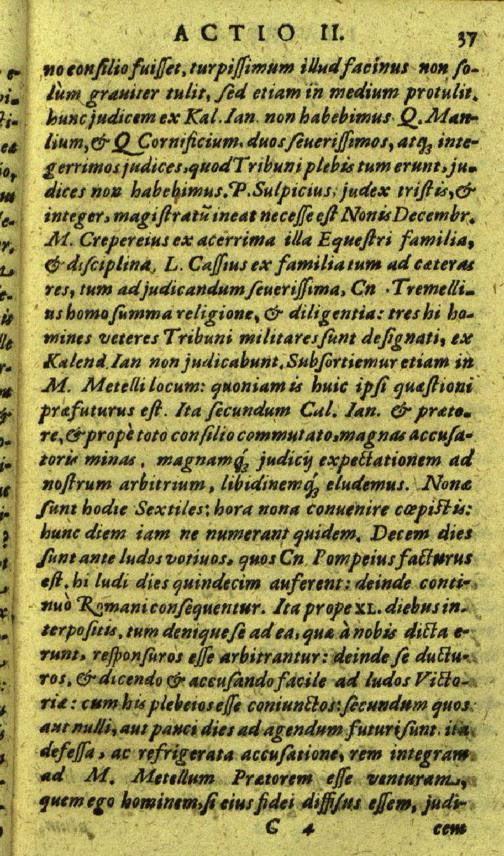 ACTIO II. 37
no consilio fuisset, turpissimum illud facinus non so-
lùm grauiter tulit, sed etiam in medium protulit.
hunc judicem ex Kal. Ian. non habebimus. Q. Man-
lium, & Q Cornificium, duos seuerissimos, atq; inte-
gerrimos judices, quod Tribuni plebis tum erunt, ju-
dices non habebimus. P. Sulpicius, judex tristis, &
integer, magistratū ineat necesse est Nonis Decembr.
M. Crepereius ex acerrima illa Equestri familia,
& disciplina, L. Cassius ex familia tum ad cæteras
res, tum ad judicandum seuerissima, Cn. Tremelli-
us homo summa religione, & diligentia: tres hi ho-
mines veteres Tribuni militares sunt designati, ex
Kalend. Ian non judicabunt. Subsortiemur etiam in
M. Metelli locum: quoniam is huic ipsi quæstioni
præfuturus est. Ita secundum Cal. Ian. & præto-
re, & propè toto consilio commutato, magnas accusa-
toris minas, magnamq; judicij expectationem ad
nostrum arbitrium, libidinemq; eludemus. Nonæ
sunt hodie Sextiles: hora nona conuenire cœpistis:
hunc diem iam ne numerant quidem. Decem dies
sunt ante ludos votiuos, quos Cn. Pompeius facturus
est. hi ludi dies quindecim auferent: deinde conti-
nuò Romani consequentur. Ita prope XL. diebus in-
terpositis, tum denique se ad ea, quæ à nobis dicta e-
runt, responsuros esse arbitrantur: deinde se ductu-
ros, & dicendo & accusando facile ad ludos Victo-
riæ: cum his plebeios esse coniunctos: secundum quos
aut nulli, aut pauci dies ad agendum futuri sunt. ita
defessa, ac refrigerata accusatione, rem integram
ad M. Metellum Prætorem esse venturam,
quem ego hominem, si eius fidei diffisus essem, judi-
C 4 cem